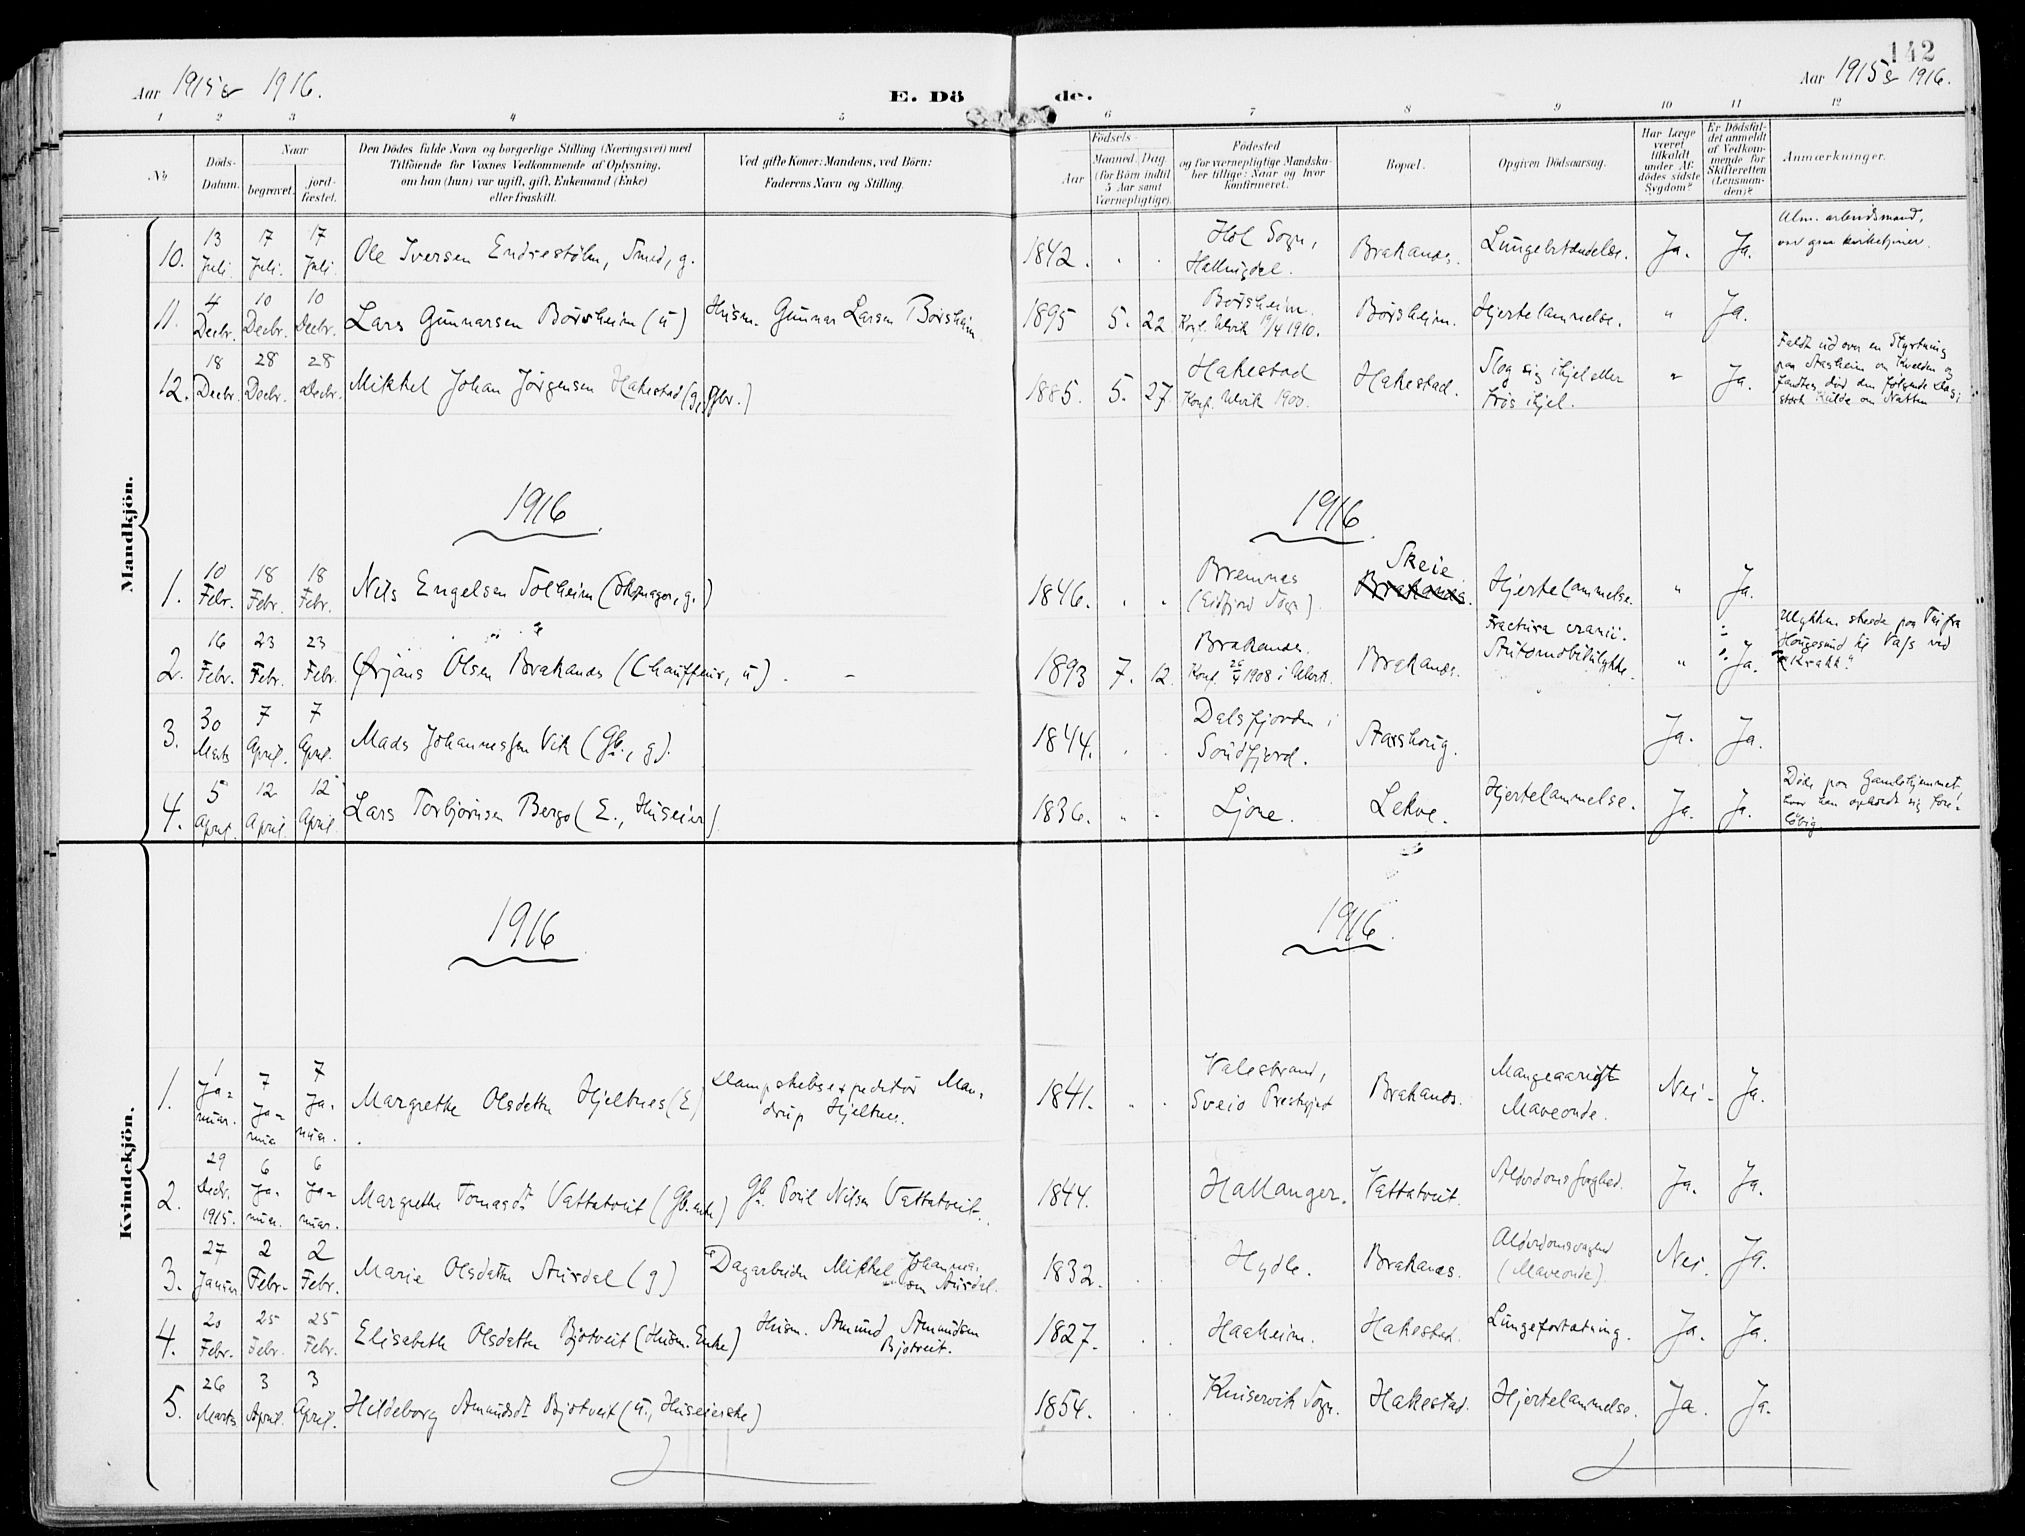 142
Aar 1915 & 1916.
E. Dö de.
Aar 1915 & 1916.
1 2 3 4 5 6 7 8 9 10 11 12
No
Döds-Datum.
Naar
begravet.
jord-fæstet.
Den Dödes fulde Navn og borgerlige Stilling (Næringsvei) med
Tilföiende for Voxnes Vedkommende af Oplysning,
om han (hun) var ugift, gift, Enkemand (Enke)
eller fraskilt.
Ved gifte Koner: Mandens, ved Börn:
Faderens Navn og Stilling.
Födsels-
Aar
Maaned. Dag
(for Börn indtil
5 Aar samt
Værnepligtige).
Födested
og for værnepligtige Mandska-
ber tillige: Naar og hvor
konfirmeret.
Bopæl.
Opgiven Dödsaarsag.
Har Læge
været
tilkaldt
under Af-
dödes sidste
Sygdom?
Er Dödsfal-
det anmeldt
af Vedkom-
mende for
Skifteretten
(Lensman-
den)?
Anmærkninger.
Mandkjön.
10. 13 Juli. 17 Juli. 17 Juli. Ole Iversen Endrestølen, Smed, g. 1842. Hol Sogn, Hallingdal. Brakanes. Lungebetændelse. Ja. Ja. Alm. arbeidsmand, var kirketjener.
11. 4 Decbr. 10 Decbr. 10 Decbr. Lars Gunnarsen Børsheim (u) Husm. Gunnar Larsen Børsheim 1895 5. 22. Børsheim. Konf. Ulvik 10/4 1910. Børsheim. Hjertelammelse. " Ja.
12. 18 Decbr. 28 Decbr. 28 Decbr. Mikkel Johan Jørgensen Hakestad (g, Gbr.) 1885. 5. 27 Hakestad Konf. Ulvik 1900. Hakestad. Slog sig ihjel eller frøs ihjel. " Ja. Faldt ud over en Styrtning
paa om Kvelden og
fandtes død den følgende Dag;
sterk Kulde om Natten
1916 1916
1. 10 Febr. 18 Febr. 18 Febr. Nils Engelsen Solheim (Skomager, g.) 1846. Bremnes (Eidfjord Sogn). Skeie Brakanes. Hjertelammelse. " Ja.
2. 16 Febr. 23 Febr. 23 Febr. Ørjans Olsen Brakanes (Chauffeur, u). 1893 7. 12. Brakanes. Konf. 26/4 1908 i Ulvik. Brakanes. Fractura cranii. Automobilulykke. " Ja. Ulykken skede paa Vei fra
Haugesund til Vass ved
"Krakk."
3. 30 Marts 7 April. 7 April. Mads Johannessen Vik (Gb., g). 1844. Dalsfjorden i Søndfjord. Ja. Ja.
4. 5 April. 12 April. 12 April. Lars Torbjørnsen Bergo (E., Huseier) 1836. Ljone. Lekve. Hjertelammelse. Ja. Ja. Døde paa Gamlehjemmet,
hvor han opholdt sig fore-
løbig.
Kvindekjön.
1916 1916
1. 1 Januar. 7 Januar 7 Januar. Margrethe Olsdatter Hjeltnes (E) Dampskibsexpeditør Mandrup Hjeltnes. 1841. Valestrand, Sveio Prestgjeld Brakanes. Mangeaarigt Maveonde. Nei. Ja.
2. 29 Decbr. 1915. 6 Januar. 6 Januar. Margrethe Tomasdt Vattatveit (Gb. enke) Gb. Poul Nilsen Vattatveit. 1844. Hallanger. Vattatveit. Alderdomssvaghed. Ja. Ja.
3. 27 Januar 2 Febr. 2 Febr. Marie Olsdatter Aurdal (g) Dagarbeider Mikkel Johannessen Aurdal. 1832. Hydle. Brakanes. Alderdomssvaghed (Maveonde). Nei. Ja.
4. 20 Febr. 25 Febr. 25 Febr. Elisabeth Olsdatter Bjotveit (Husm. Enke) Husm. Amund Amundsen Bjotveit. 1827. Haaheim. Hakestad. Lungefortætning. Ja. Ja.
5. 26 Marts 3 April. 3 April. Hildeborg Amundsdt Bjotveit (u., Huseierske) 1854. Kinservik Sogn. Hakestad. Hjertelammelse. Ja. Ja.